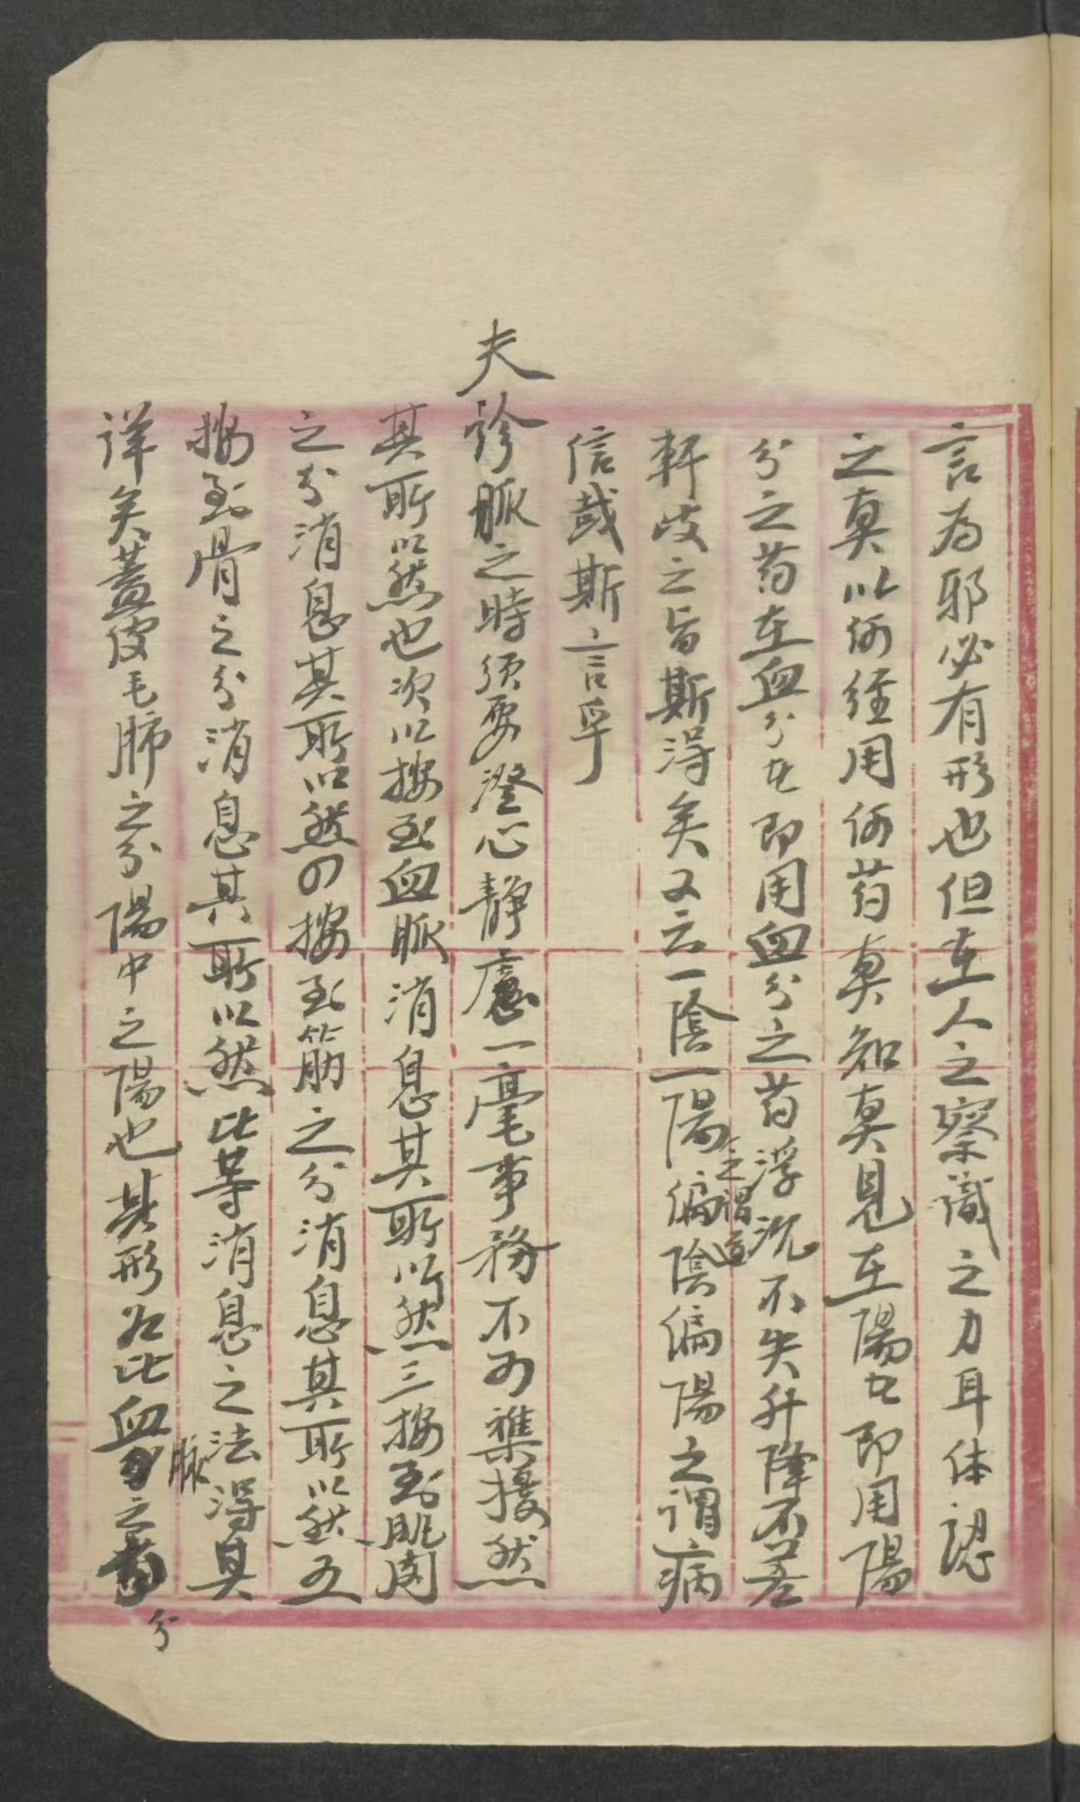 言為邪必有形也但在人之察識之力耳体認
之真以何经用何药真知真見在陽分即用陽
分之药在血分即用血分之药浮沉不失升降不差
軒岐之旨斯得矣又云一陰一陽之谓道偏陰偏陽之谓病
信哉斯言乎
夫診脈之時須要澄心静慮一毫事務不可襍擾然
其所以然也次以按至血脈消息其所以然三按至肌肉
之分消息其所以然四按至筋之分消息其所以然五
按至骨之分消息其所以然比等消息之法得其
详矣蓋皮毛肺之分陽中之陽也其形如比血脈之分